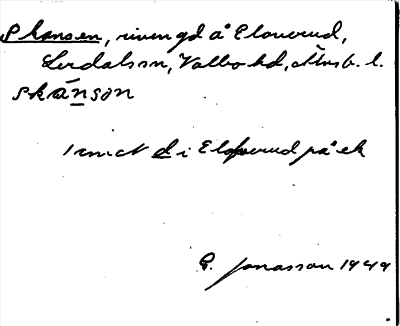 Skansen, riven gd å Elouerud,
Lerdalssn, Valbo hd, Älvsb. l.
skānson
1 mct d i Elouerud på ek
G. Jonasson 1949